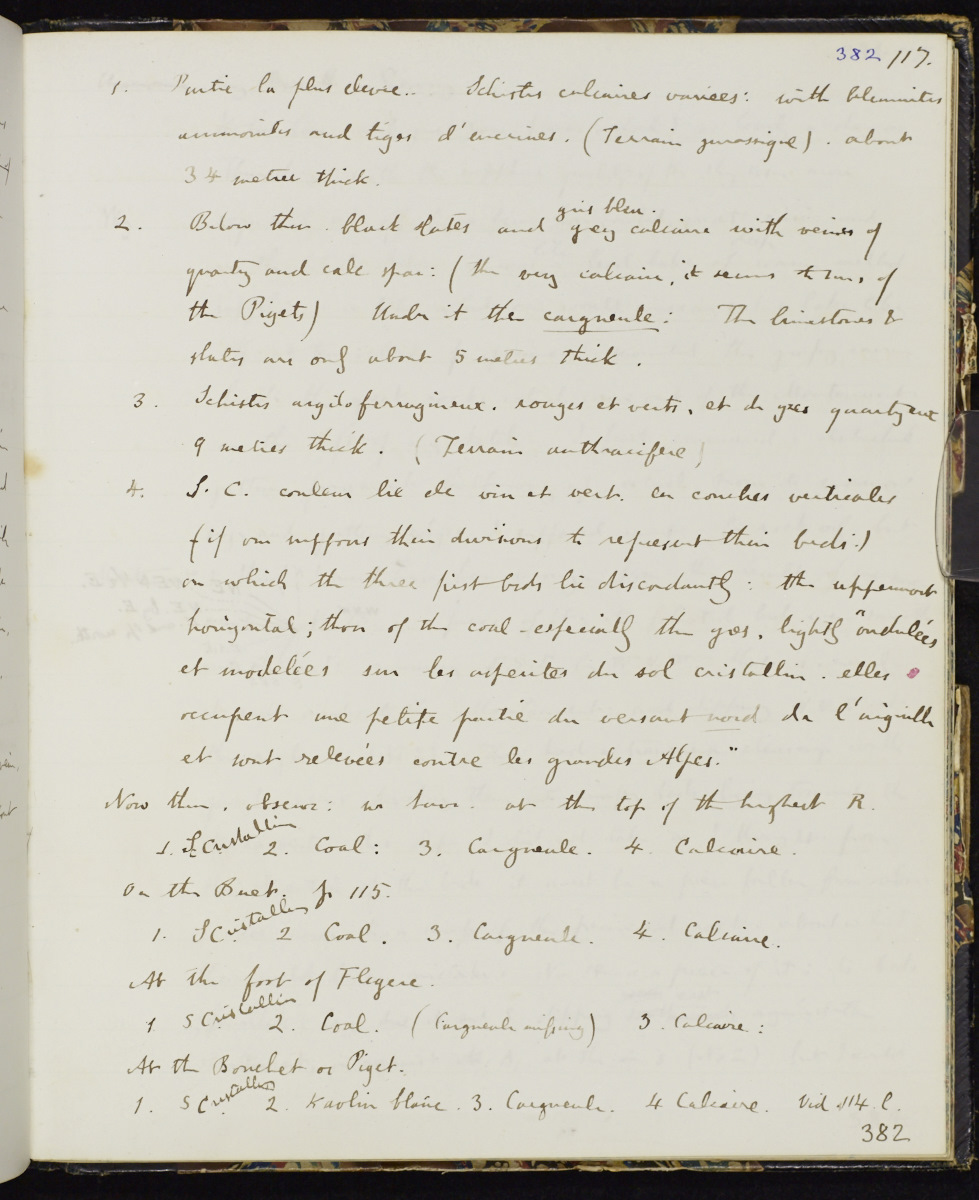 382 117.
1. Partie la plus elevee.. Schistes calcaires variees: with belemnites
ammonites and tiges d'encrines. (Terrain jurassique). about
34 metres thick.
gris bleu.
2. Below them. black slates and grey calcaire with veins of
quartz and calc spar: (the very calcaire, it seems to me, of
the Pigets) Under it the cargneule: The limestones &
slates are only about 5 metres thick.
3. Schistes argiloferrugineux. rouges et verts, et de gres quartzeux
9 metres thick. (Terrain anthracifere)
4. S. C. couleur lie de vin et vert. en couches verticales
(if one suppose their divisions to represent their beds.)
on which the three first beds lie discordantly: the uppermost
horizontal; those of the coal - especially the gres, lightly "ondulées
et modelées sur les asperites du sol cristallin. elles
occupent une petite partie du versant nord de l'aiguille
et sont relevées contre les grandes Alpes."
Now then, observe: we have. at the top of the highest R.
1. S. Cristallin 2. Coal: 3. Cargneule. 4. Calcaire.
On the Buet. p 115.
1. S Cristallin 2 Coal. 3. Cargneule. 4. Calcaire.
At the foot of Flegere.
1 S Cristallin 2. Coal. (Cargneule missing) 3. Calcaire:
At the Bouchet or Piget.
1. S Cristallin 2. Kaolin blanc. 3. Cargneule. 4 Calcaire. Vid 114. l.
382